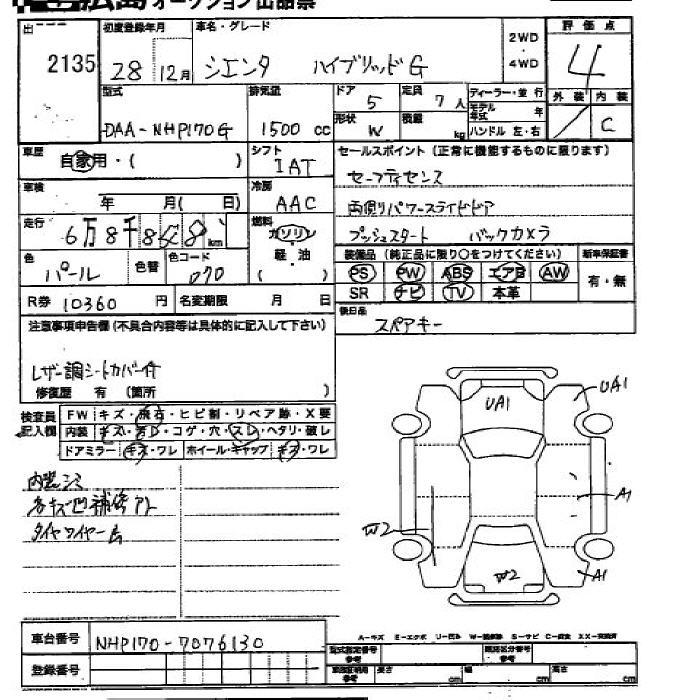 広島 オークション出品票
出 初度登録年月 車名・グレード 2WD 評価点
2135 28 12月 シエンタ ハイブリッドG 4WD 4
型式 排気量 ドア 定員 ディーラー・並行 外装 内装
5 7人 モデル年式 年
DAA-NHP170G 1500 cc 形状 W 積載 kg ハンドル 左・右 C
車歴 シフト セールスポイント (正常に機能するものに限ります)
自家用・( ) IAT セーフティセンス
車検 冷房
年 月( 日) AAC 両側パワースライドドア
走行 燃料
6万8千8 8 km ガソリン プッシュスタート バックカメラ
色 色替 色コード 軽・油 装備品 (純正品に限り○をつけてください) 新車保証書
パール 070 ( ) PS PW ABS エアB AW 有・無
R券 10360 円 名変期限 月 日 SR ナビ TV 本革
注意事項申告欄 (不具合内容等は具体的に記入して下さい) 後日品
スペアキー
レザー調シートカバー付
修復歴 有 (箇所 )
検査員 FW キズ・飛石・ヒビ割・リペア跡・X要
記入欄 内装 キズ・汚れ・コゲ・穴・スレ・ヘタリ・破レ
ドアミラー キズ・ワレ ホイール・キャップ キズ・ワレ
UA1 UA1
内装シミ
各キズ凹補修アト
タイヤワイヤー
A1
W2
W2 A1
A-キズ E-エクボ U-凹み W-補修跡 S-サビ C-腐食 XX-交換済
車台番号 NHP170-7076130 型式指定番号 類別区分番号
参考 参考
登録番号 長さ cm 幅 cm 高さ cm